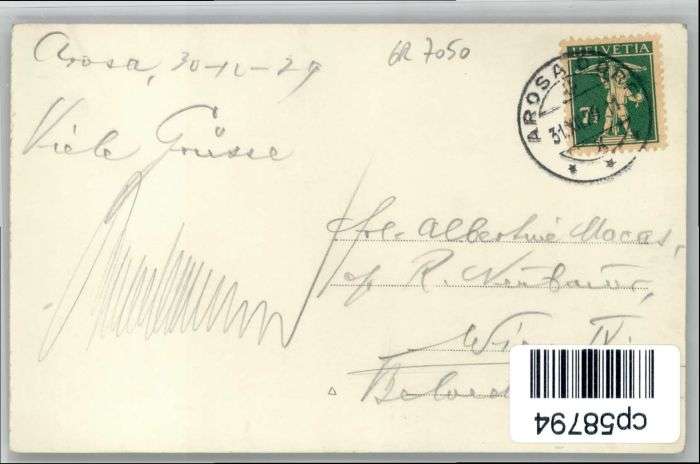 Arosa, 30-12-29
GR 7050
Viele Grüsse
HELVETIA
7½
AROSA
31.XII.29
Frl. Albertine Macas,
p/ R. Neubauer,
Wien IV.
Belved
cp58794